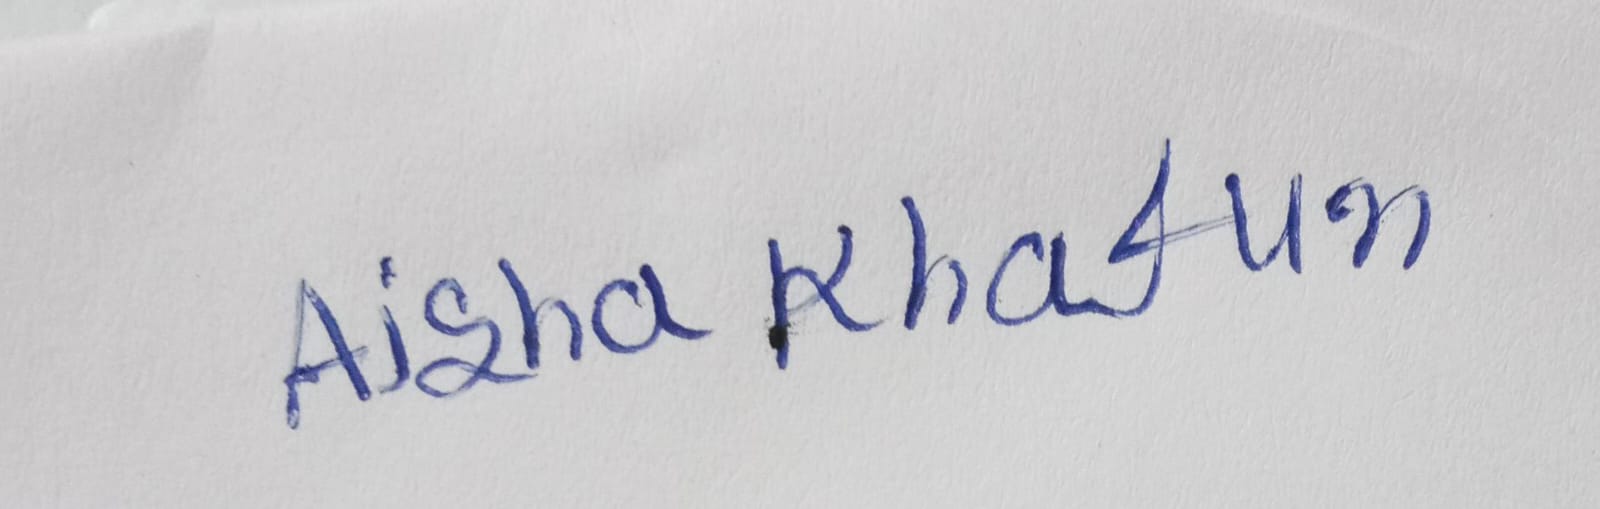 Aisha Khatun